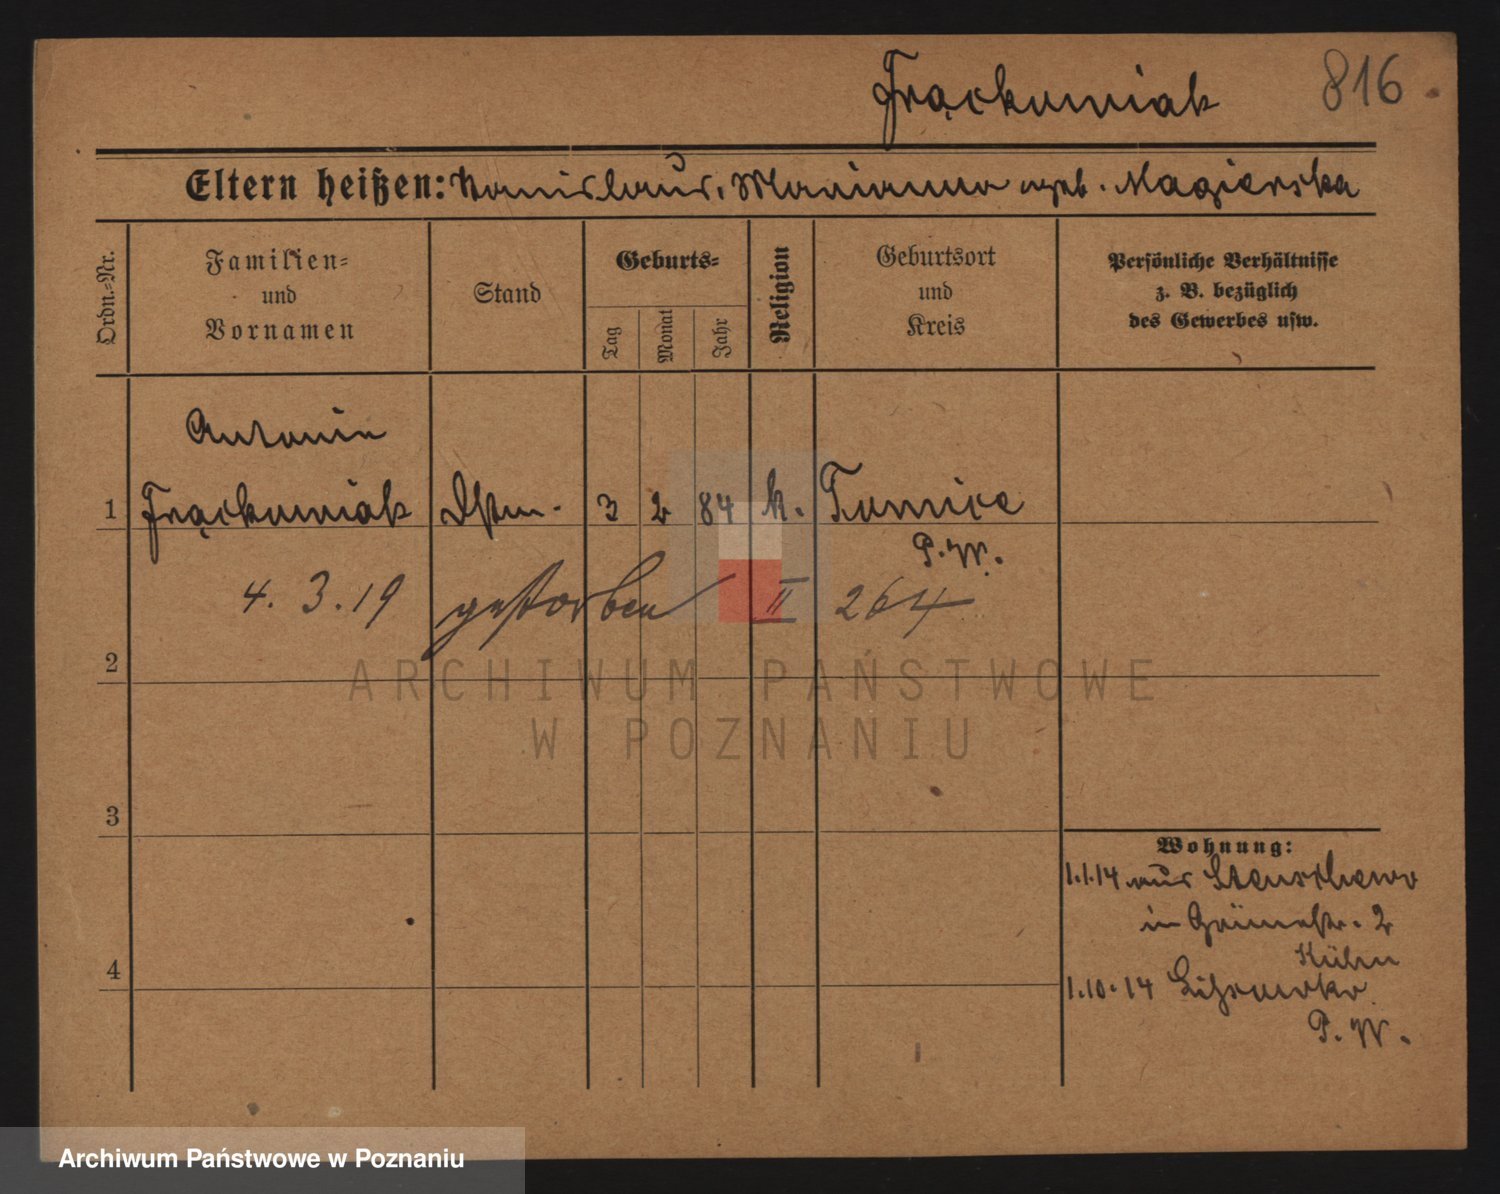 Frąckowiak 816
Eltern heißen: Stanislaus, Marianna geb. Magierska
Ordn.=Nr.
Familien=
und
Vornamen
Stand
Geburts=
Tag
Monat
Jahr
Religion
Geburtsort
und
Kreis
Persönliche Verhältnisse
z. B. bezüglich
des Gewerbes usw.
Antonie
1 Frąckowiak 3 2 84 k. Tarnice
P. W.
4. 3. 19 gestorben II 264
2
3
4
Wohnung:
1.1.14 aus Stenschewo
in Grünestr. 2
Kühn
1.10.14
P. W.
ARCHIWUM PAŃSTWOWE
W POZNANIU
Archiwum Państwowe w Poznaniu